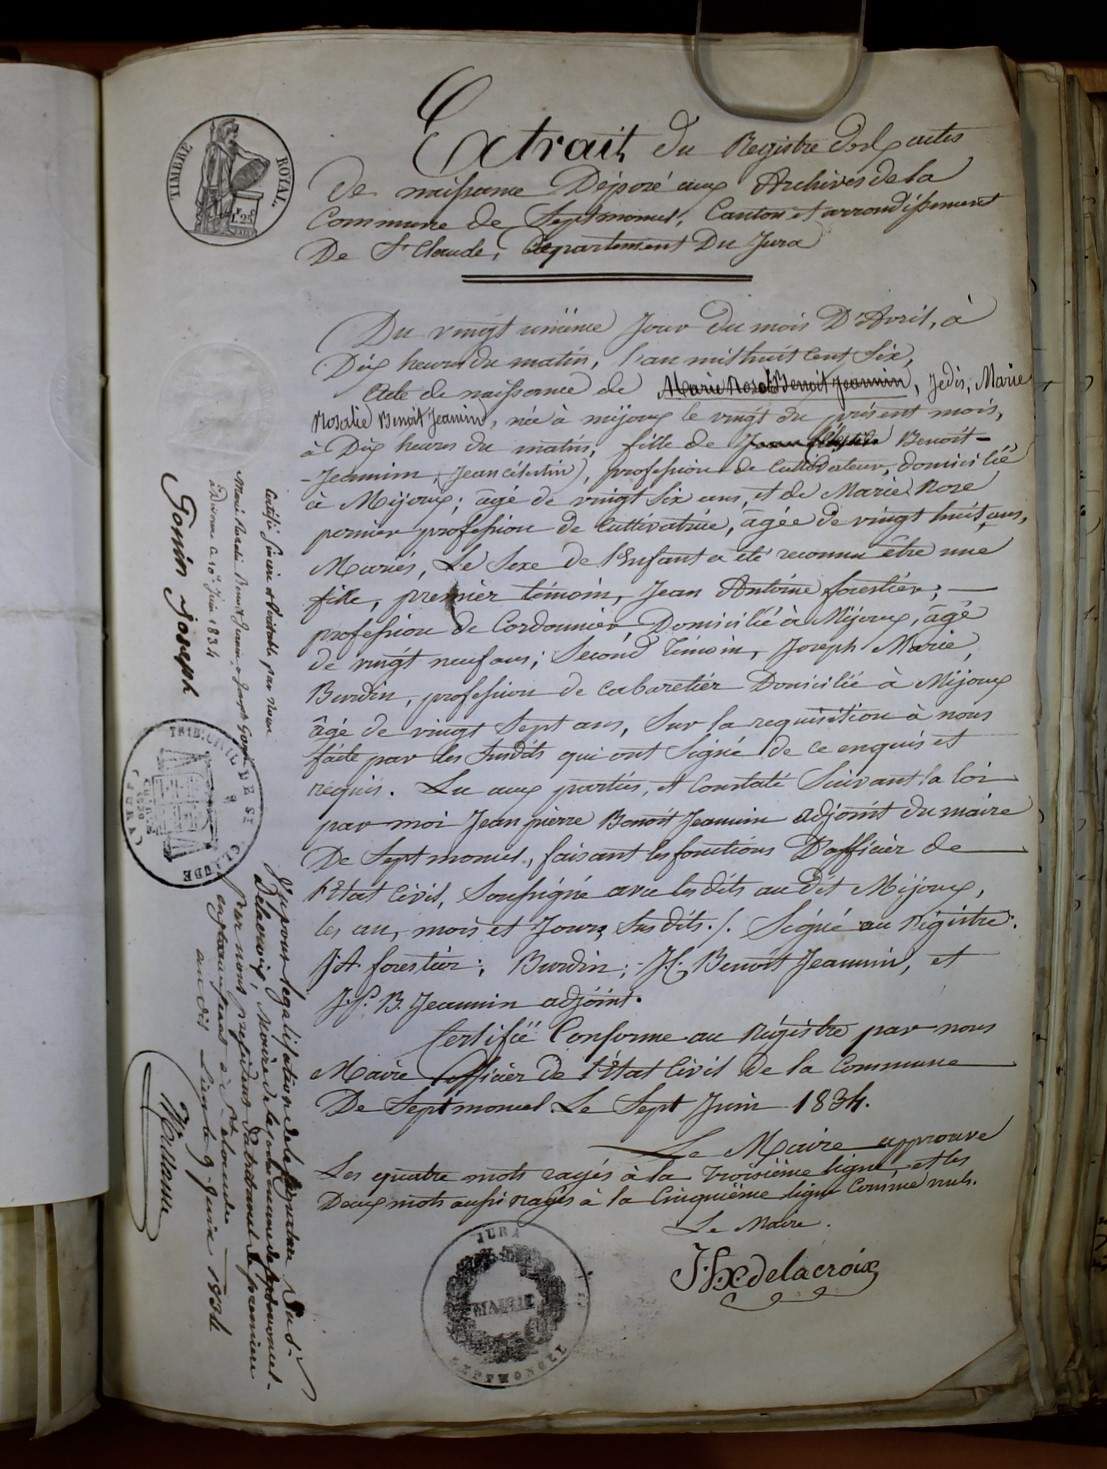 TIMBRE ROYAL
Extrait du Registre des actes
de naissance Déposé aux Archives de la
Commune de Septmoncel, Canton et arrondissement
De St Claude, Département Du Jura
Du vingt unième jour du mois D'Avril, à
Dix heures du matin, l'an mil huit cent six,
Acte de naissance de Marie Rose Benoit Jeannin, je dis, Marie
Rosalie Benoit Jeannin, née à mijoux le vingt du présent mois,
à Dix heures du matin, fille de Benoit-
-Jeannin (Jean célestin), profession de Cultivateur, domicilié
à Mijoux; âgé de vingt six ans, et de Marie Rose
pernier profession de Cultivatrice, âgée de vingt huit ans,
Mariés, Le Sexe de l'Enfant a été reconnu être une
fille, premier témoin, Jean Antoine forestier;
profession de Cordonnier Domicilié à Mijoux, âgé
de vingt neuf ans; Second Témoin, Joseph Marie
Burdin, profession de cabaretier Domicilié à Mijoux
âgé de vingt Sept ans, Sur la requisition à nous
faite par les Susdits qui ont Signé de ce enquis et
requis. Lu aux parties, et Constaté Suivant la loi
par moi Jean pierre Benoit Jeannin adjoint du maire
De Septmoncel, faisant les fonctions D'officier de
l'Etat Civil, Soussigné avec les dits au dit Mijoux,
les an, mois et Jour, Susdits ./. Signé au Régistre:
J A forestier; Burdin; J. C. Benoit Jeannin, et
J. P. B. Jeannin adjoint.
Certifié Conforme au Régistre par nous
Maire officier de l'État Civil de la Commune
De Septmoncel Le Sept Juin 1834.
Le Maire approuve
Les quatre mots rayés à la troisième ligne et les
Deux mots aussi rayés à la Cinquième ligne Comme nuls.
Le Maire.
Delacroix
JURA
MAIRIE
SEPTMONCEL
Certifié Sincère et Véritable par Nous
Marie Rosalie Benoit Jeannin et Joseph Gonin
Gonin Joseph
TRIB. CIVIL DE ST CLAUDE
(JURA)
Vu pour légalisation de la signature Du Sr
Delacroix, Maire de la commune de Septmoncel,
Par nous président du tribunal de première
instance séant à St Claude
audit Lieu le 9 Juin 1834